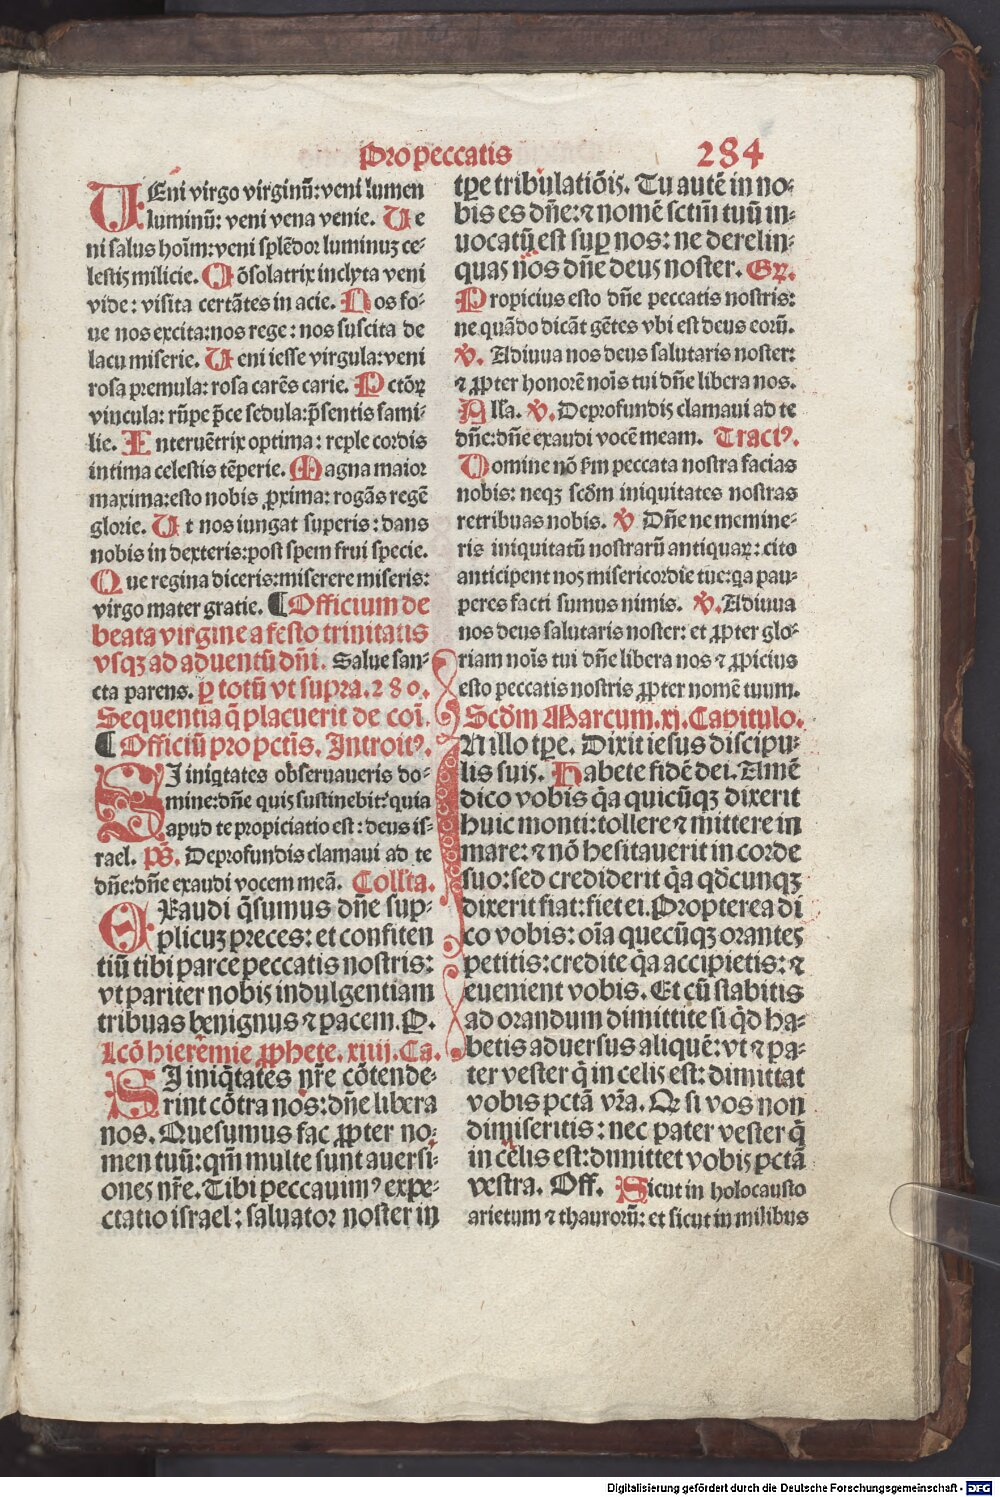 Pro peccatis 284
VEni virgo virginū: veni lumen
luminū: veni vena venie. Ve
ni salus hoīm: veni splēdor luminuꝫ ce-
lestis milicie. Cōsolatrix inclyta veni
vide: visita certātes in acie. Nos fo-
ue nos excita: nos rege: nos suscita de
lacu miserie. Veni iesse virgula: veni
rosa premula: rosa carēs carie. Pctōꝝ
vincula: rūpe p̄ce sedula: p̄sentis fami-
lie. Interuētrix optima: reple cordis
intima celestis tēperie. Magna maior
maxima: esto nobis ꝓxima: rogās regē
glorie. Ut nos iungat superis: dans
nobis in dexteris: post spem frui specie.
Que regina diceris: miserere miseris:
virgo mater gratie. ¶ Officium de
beata virgine a festo trinitatis
vsqꝫ ad aduentū dñi. Salue san-
cta parens. ꝑ totū vt supra. 280.
Sequentia q̄ placuerit de coī.
¶ Officiū pro pctīs. Introitꝰ.
SI iniqtates obseruaueris do-
mine: dñe quis sustinebit: quia
apud te propiciatio est: deus is-
rael. ps̄. De profundis clamaui ad te
dñe: dñe exaudi vocem meā. Collīta.
EXaudi q̄sumus dñe sup-
plicuꝫ preces: et confiten
tiū tibi parce peccatis nostris:
vt pariter nobis indulgentiam
tribuas benignus ⁊ pacem. P.
Lcō hieremie ꝓphete. xiiij. Ca.
SI iniq̄tates nr̄e cōtende-
rint cōtra nos: dñe libera
nos. Quesumus fac ꝓpter no-
men tuū: qm̄ multe sunt auersi-
ones nr̄e. Tibi peccauimꝰ expe-
ctatio israel: saluator noster in
tꝑe tribulatiōis. Tu autē in no-
bis es dñe: ⁊ nomē sctm̄ tuū in-
uocatū est suꝑ nos: ne derelin-
quas nos dñe deus noster. Gꝝ.
Propicius esto dñe peccatis nostris:
ne quādo dicāt gētes vbi est deus eorū.
v̄. Adiuua nos deus salutaris noster:
⁊ ꝓpter honorē noīs tui dñe libera nos.
Alla. v̄. De profundis clamaui ad te
dñe: dñe exaudi vocē meam. Tractꝰ.
Domine nō s̄m peccata nostra facias
nobis: neqꝫ scd̄m iniquitates nostras
retribuas nobis. v̄ Dñe ne memine-
ris iniquitatū nostrarū antiquaꝝ: cito
anticipent nos misericordie tue: qa pau-
peres facti sumus nimis. v̄. Adiuua
nos deus salutaris noster: et ꝓpter glo-
riam noīs tui dñe libera nos ⁊ ꝓpicius
esto peccatis nostris ꝓpter nomē tuum.
Scd̄m Marcum. xj. Capitulo.
IN illo tꝑe. Dixit iesus discipu-
lis suis. Habete fidē dei. Amē
dico vobis q̄a quicūqꝫ dixerit
huic monti: tollere ⁊ mittere in
mare: ⁊ nō hesitauerit in corde
suo: sed crediderit q̄a qd̄cunqꝫ
dixerit fiat: fiet ei. Propterea di
co vobis: oīa quecūqꝫ orantes
petitis: credite q̄a accipietis: ⁊
euenient vobis. Et cū stabitis
ad orandum dimittite si q̄d ha-
betis aduersus aliquē: vt ⁊ pa-
ter vester q̄ in celis est: dimittat
vobis pctā vr̄a. Q si vos non
dimiseritis: nec pater vester q̄
in celis est: dimittet vobis pctā
vestra. Off. Sicut in holocausto
arietum ⁊ thaurorū: et sicut in milibus
Digitalisierung gefördert durch die Deutsche Forschungsgemeinschaft - DFG